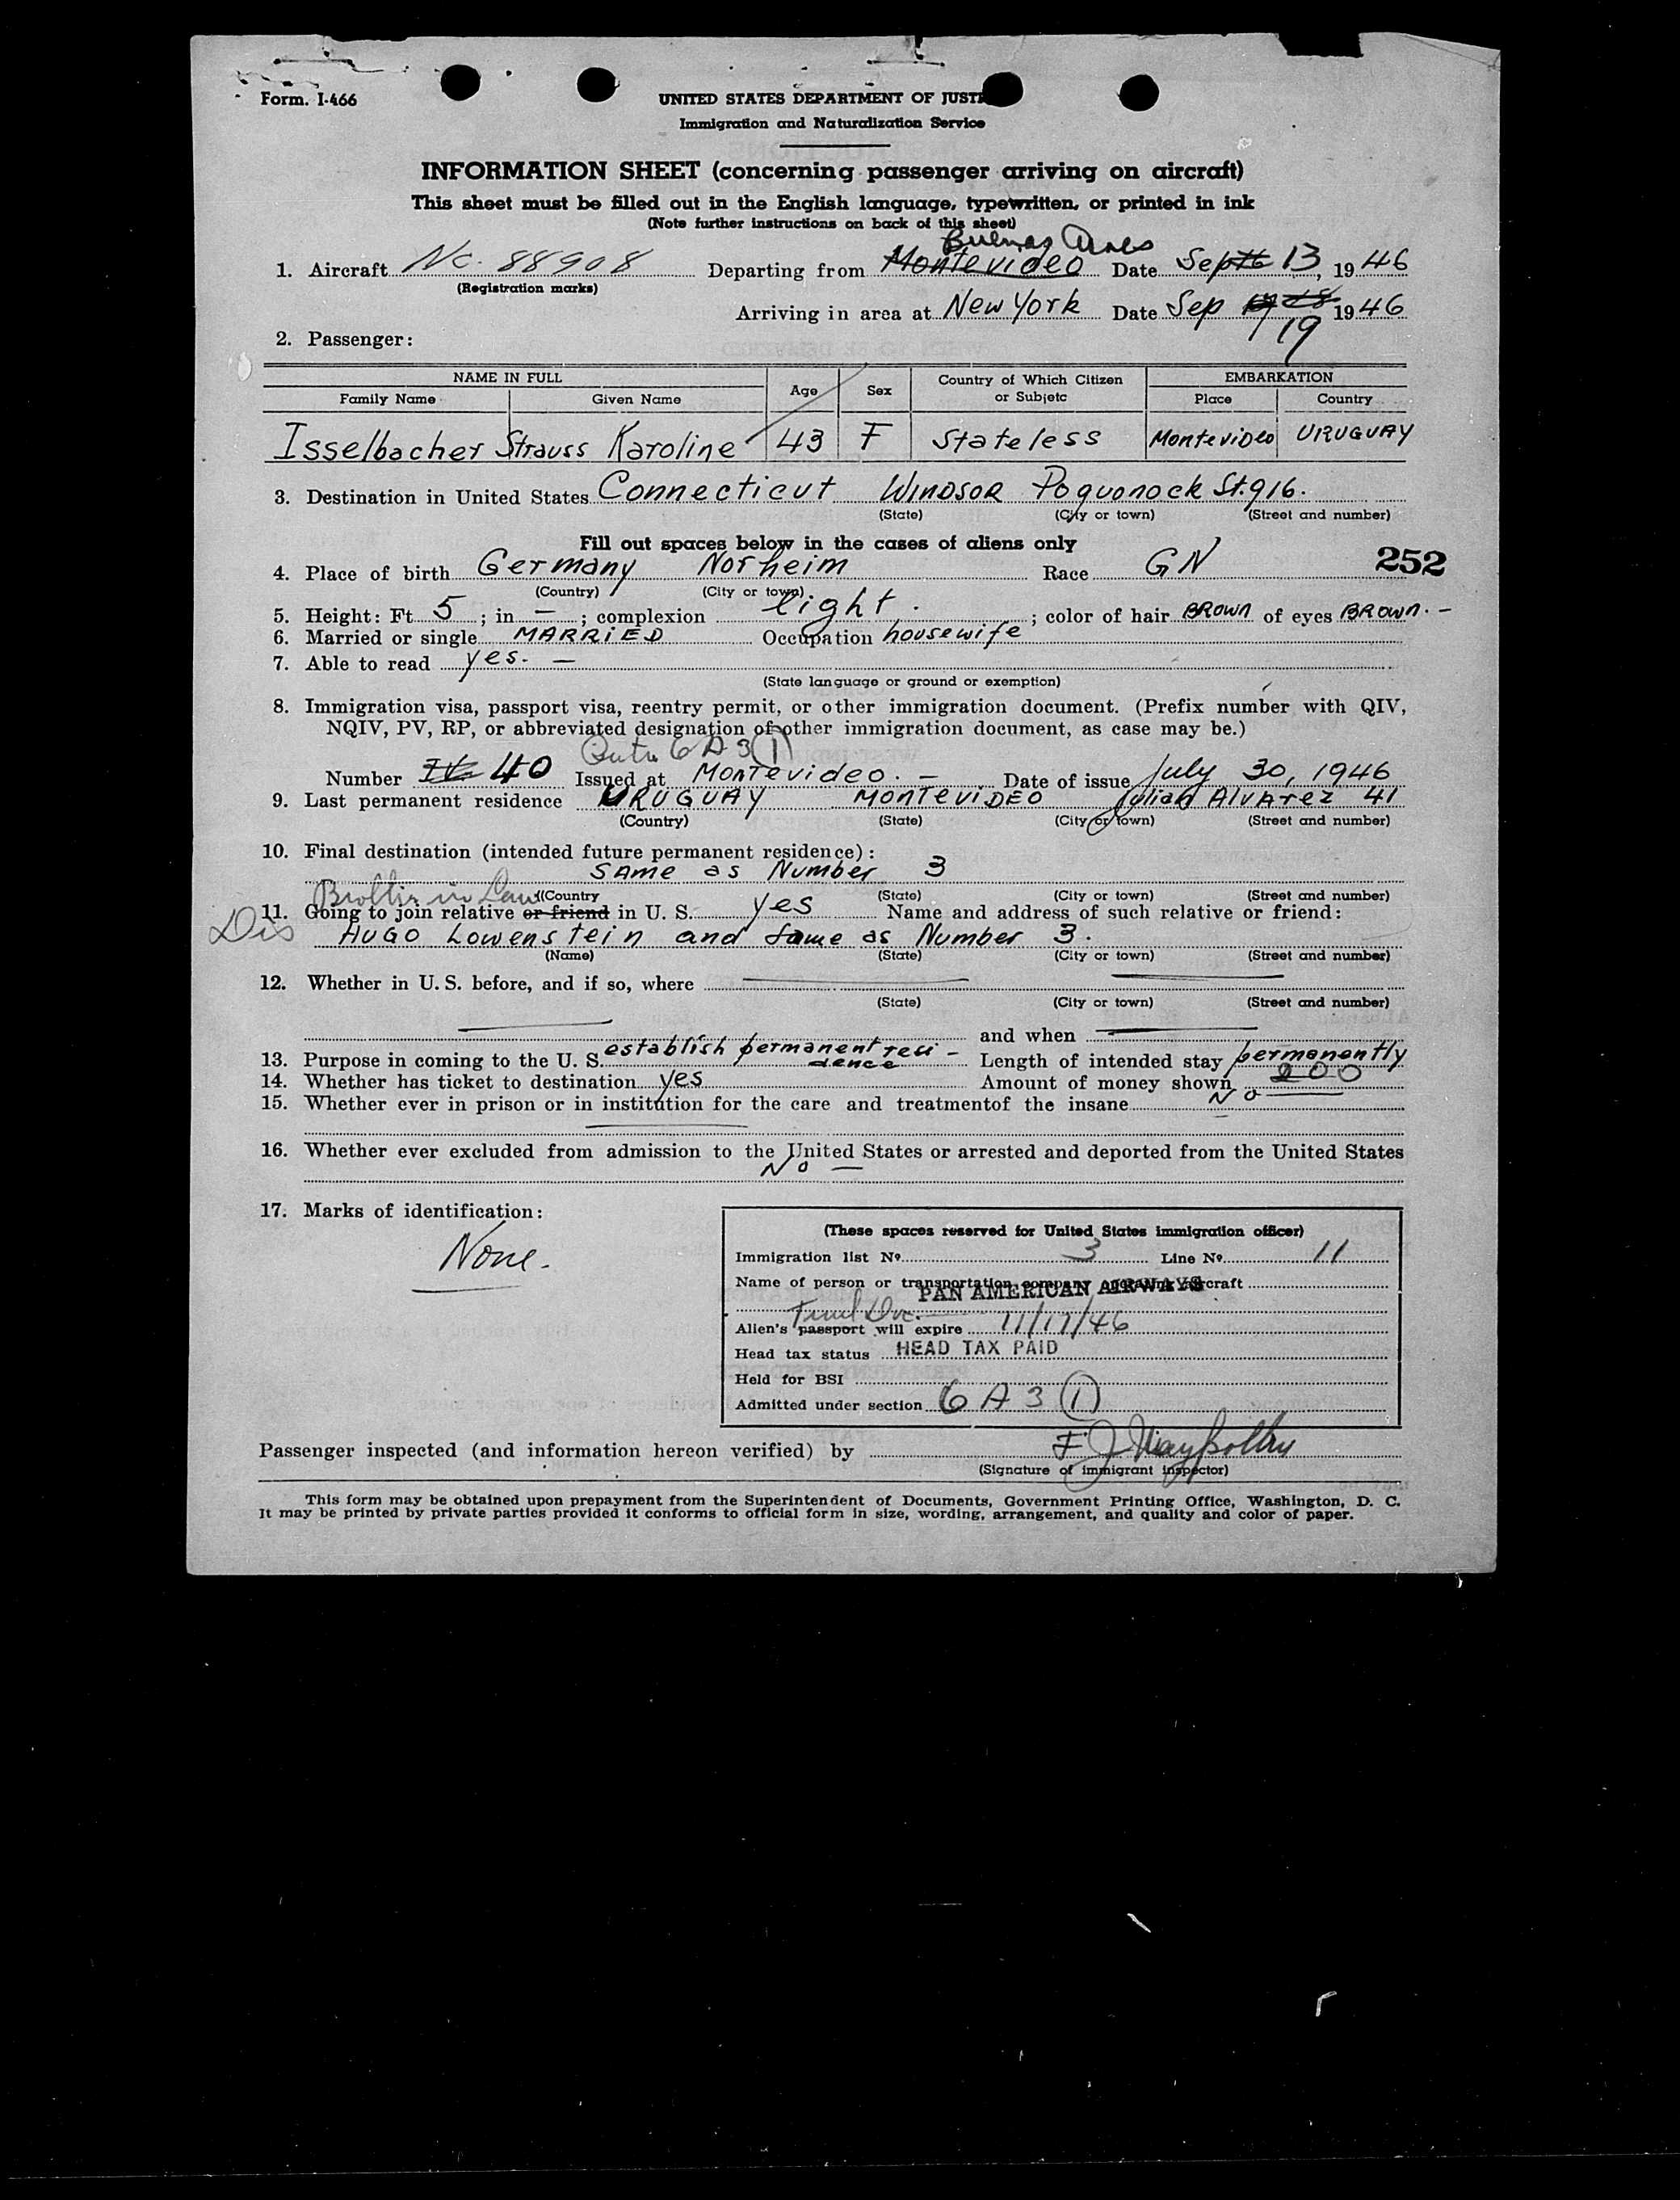 Form. I-466
UNITED STATES DEPARTMENT OF JUST
Immigration and Naturalization Service
INFORMATION SHEET (concerning passenger arriving on aircraft)
This sheet must be filled out in the English language, typewritten, or printed in ink
(Note further instructions on back of this sheet)
Buenos Aires
1. Aircraft Nc. 88908 Departing from Montevideo Date Sept 13, 1946
(Registration marks)
Arriving in area at New York Date Sep 1946
19
2. Passenger:
NAME IN FULL Age Sex Country of Which Citizen or Subjetc EMBARKATION
Family Name Given Name Place Country
Isselbacher Strauss Karoline 43 F Stateless Montevideo URUGUAY
3. Destination in United States Connecticut WINDSOR Poquonock St. 916.
(State) (City or town) (Street and number)
Fill out spaces below in the cases of aliens only
4. Place of birth Germany Norheim Race GN 252
(Country) (City or town)
5. Height: Ft 5 ; in — ; complexion light. ; color of hair BROWN of eyes BROWN. –
6. Married or single MARRIED Occupation housewife
7. Able to read yes. —
(State language or ground or exemption)
8. Immigration visa, passport visa, reentry permit, or other immigration document. (Prefix number with QIV,
NQIV, PV, RP, or abbreviated designation of other immigration document, as case may be.)
6 A 3 (1)
Number 40 Issued at Montevideo. — Date of issue July 30, 1946
9. Last permanent residence URUGUAY MONTEVIDEO Julian Alvarez 41
(Country) (State) (City or town) (Street and number)
10. Final destination (intended future permanent residence):
SAME as Number 3
Brother in Law (Country (State) (City or town) (Street and number)
11. Going to join relative or friend in U. S. yes Name and address of such relative or friend:
Dis HUGO Lowenstein and Same as Number 3.
(Name) (State) (City or town) (Street and number)
12. Whether in U. S. before, and if so, where
(State) (City or town) (Street and number)
and when
13. Purpose in coming to the U. S. establish permanent resi - Length of intended stay permanently
dence
14. Whether has ticket to destination yes Amount of money shown 200
15. Whether ever in prison or in institution for the care and treatmentof the insane No
16. Whether ever excluded from admission to the United States or arrested and deported from the United States
No —
17. Marks of identification:
None.
(These spaces reserved for United States immigration officer)
Immigration list Nº 3 Line Nº 11
Name of person or transportation company operating aircraft
PAN AMERICAN AIRWAYS
Alien's passport will expire 11/17/46
Head tax status HEAD TAX PAID
Held for BSI
Admitted under section 6 A 3 (1)
Passenger inspected (and information hereon verified) by F J
(Signature of immigrant inspector)
This form may be obtained upon prepayment from the Superintendent of Documents, Government Printing Office, Washington, D. C.
It may be printed by private parties provided it conforms to official form in size, wording, arrangement, and quality and color of paper.